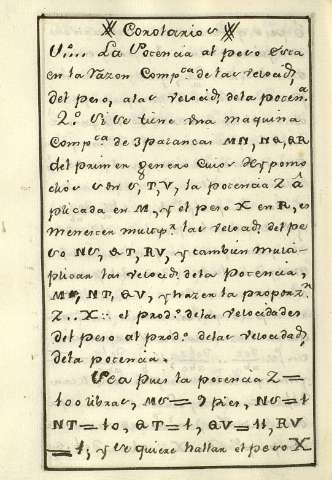 Corolarios
1º... La Potencia al peso esta
en la razon Compca de las velocids
del peso, a las velocids de la potena
2º Si se tiene una maquina
Compca de 3 palancas MN, NQ, QR
del primer genero cuios Hypomo
clios son S, T, V, la potencia Z â
plicada en M, y el peso X en R, es
menester multipr las velocids del pe
so NS, QT, RV, y tambien multi-
plican las velocids de la potencia,
MS, NT, QV, y hazen la proporzn
Z..X:: el prodo de las velocidades
del peso al prodo de las velocidads
de la potencia.
Sea pues la potencia Z=
100 libras, MS= 9 pies, NS=1
NT=10, QT=1, QV=11, RV
=1; y se quiere hallar el peso X